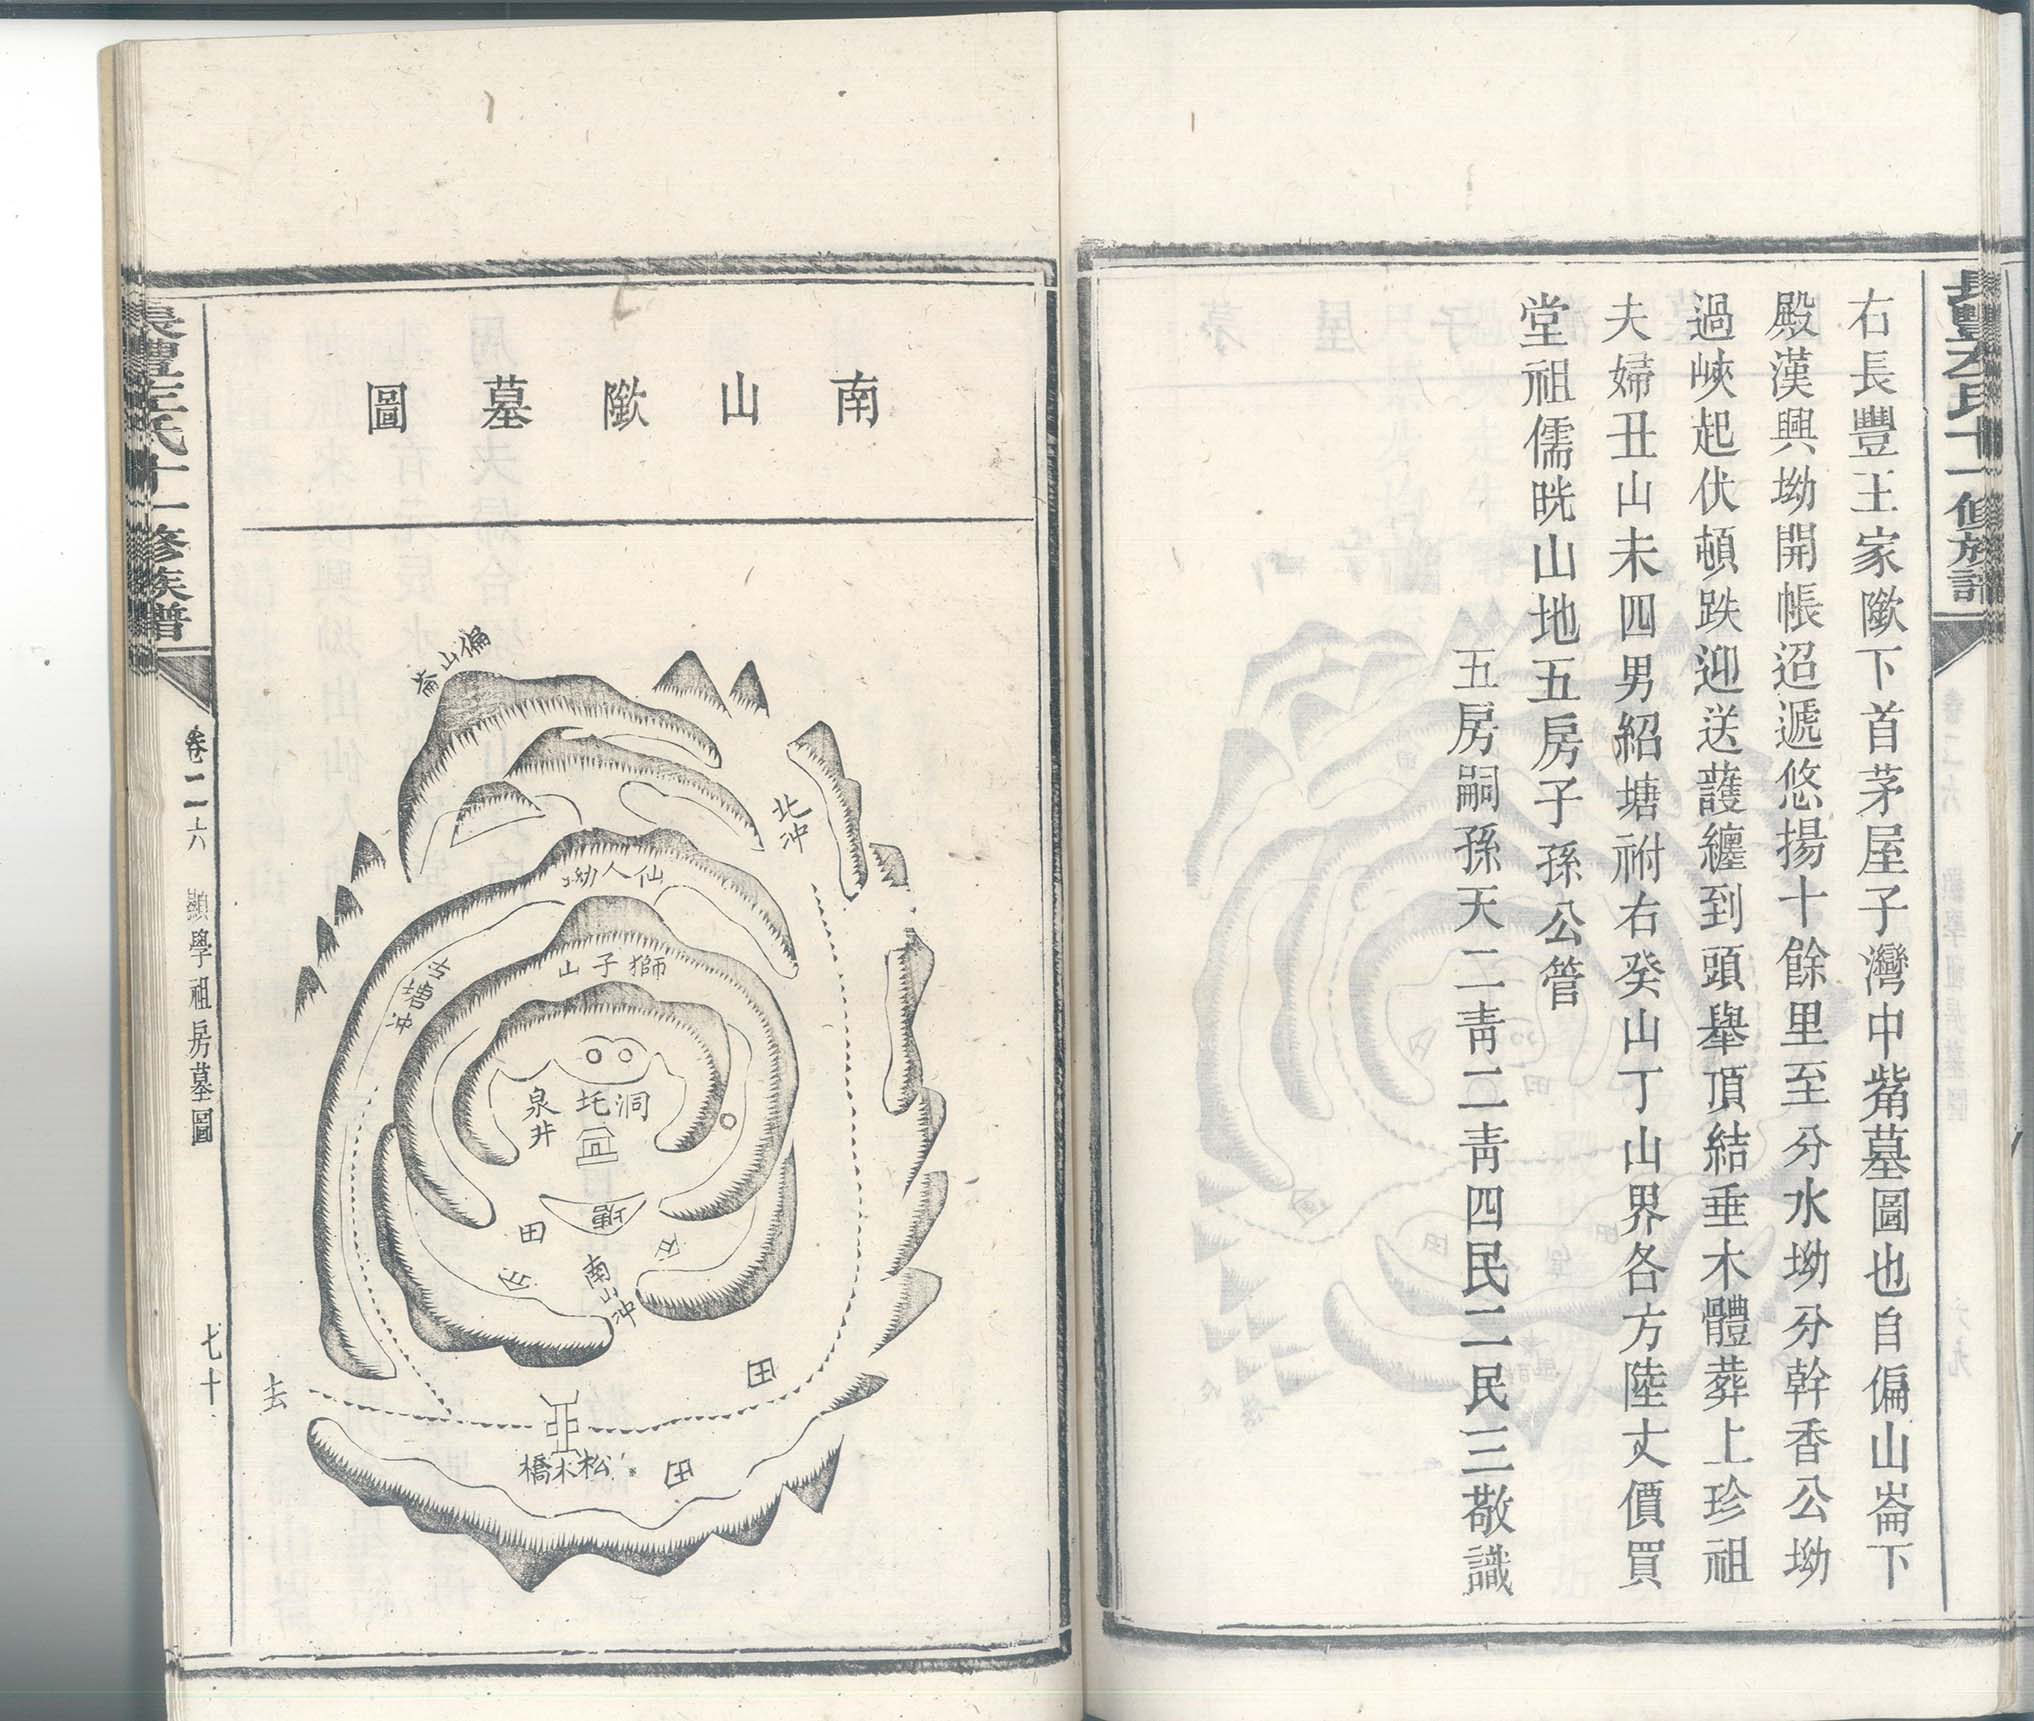 右長豐王家歘下首茅屋子灣中觜墓圖也自偏山崙下
殿漢興坳開帳迢遞悠揚十餘里至分水坳分幹香公坳
過峽起伏頓跌迎送護纏到頭舉頂結垂木體葬上珍祖
夫婦丑山未四男紹塘祔右癸山丁山界各方陸丈價買
堂祖儒晄山地五房子孫公管
五房嗣孫天二靑二靑四民二民三敬識
南山歘墓圖
偏山崙
北冲
仙人坳
獅子山
洞
泉井
田
南山冲
田
松木橋
田
去
卷二六
顯學祖房墓圖
七十